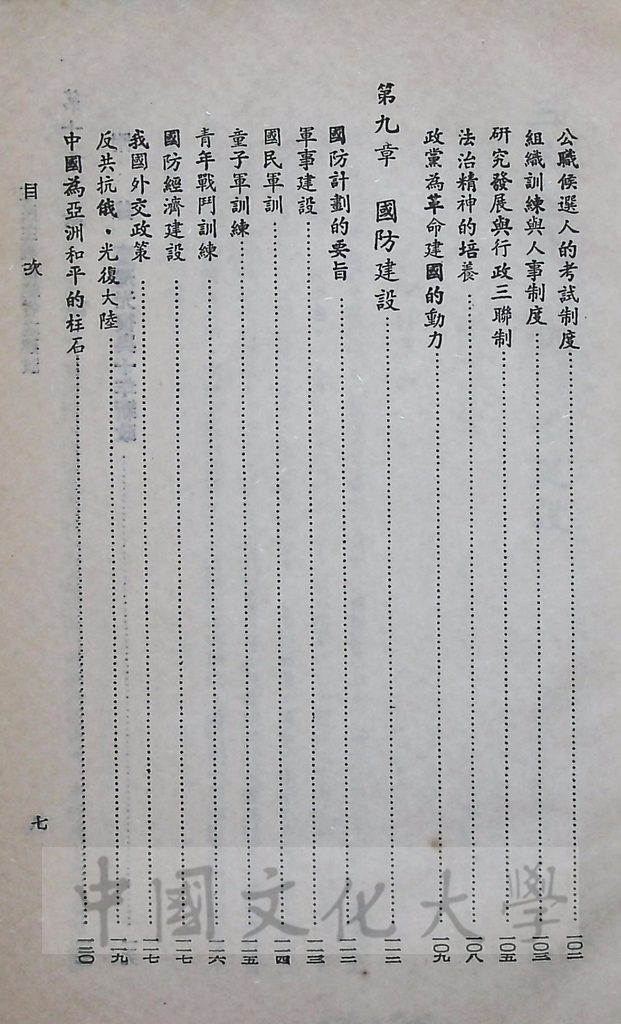 公職候選人的考試制度……一〇二
組織訓練與人事制度……一〇三
研究發展與行政三聯制……一〇五
法治精神的培養……一〇八
政黨為革命建國的動力……一〇九
第九章 國防建設……一一二
國防計劃的要旨……一一二
軍事建設……一一三
國民軍訓……一一四
童子軍訓練……一一五
青年戰鬥訓練……一一六
國防經濟建設……一一七
我國外交政策……一一七
反共抗俄・光復大陸……一一九
中國為亞洲和平的柱石……一二〇
目次
七
中國文化大學